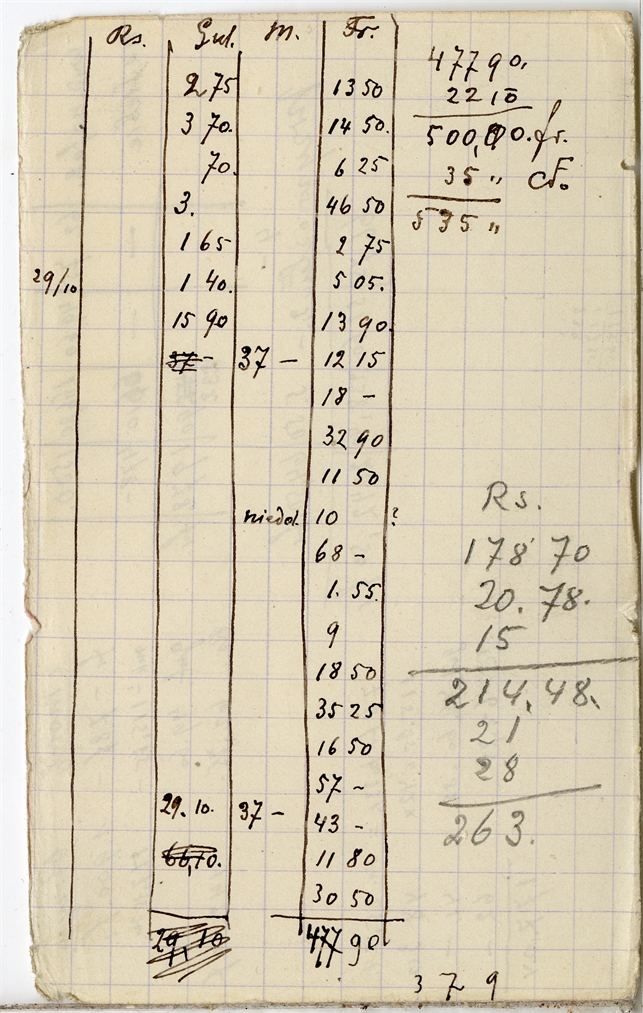 Rs. Gul. M. Fr.
2 75 13 50
3 70. 14 50.
70. 6 25
3. 46 50
1 65 2 75
29/10 1 40. 5 05.
15 90 13 90.
37 - 37 - 12 15
18 -
32 90
11 50
10 ?
68 -
1. 55.
9
18 50
35 25
16 50
57 -
29. 10. 37 - 43 -
66,10. 11 80
30 50
29,10 477 90
477 90,
22 10
500,00. fr.
35 "
535 "
Rs.
178 70
20. 78.
15
214. 48.
21
28
263.
3 7 9